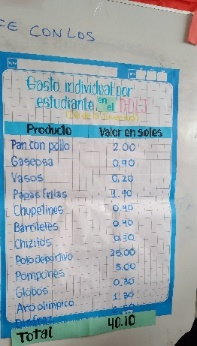 FE CON LOS
Gasto individual por
estudiante, en el
Producto Valor en Soles
Pan con pollo 2.00
Gaseosa 0,90
Vasos 0.20
Papas fritas
Chupetines 0.40
Barriletes 0.40
Chizitos 0.30
Polo deportivo 25.00
Pompones 5.00
Globos 0.30
Aro olímpico
Total 40.10